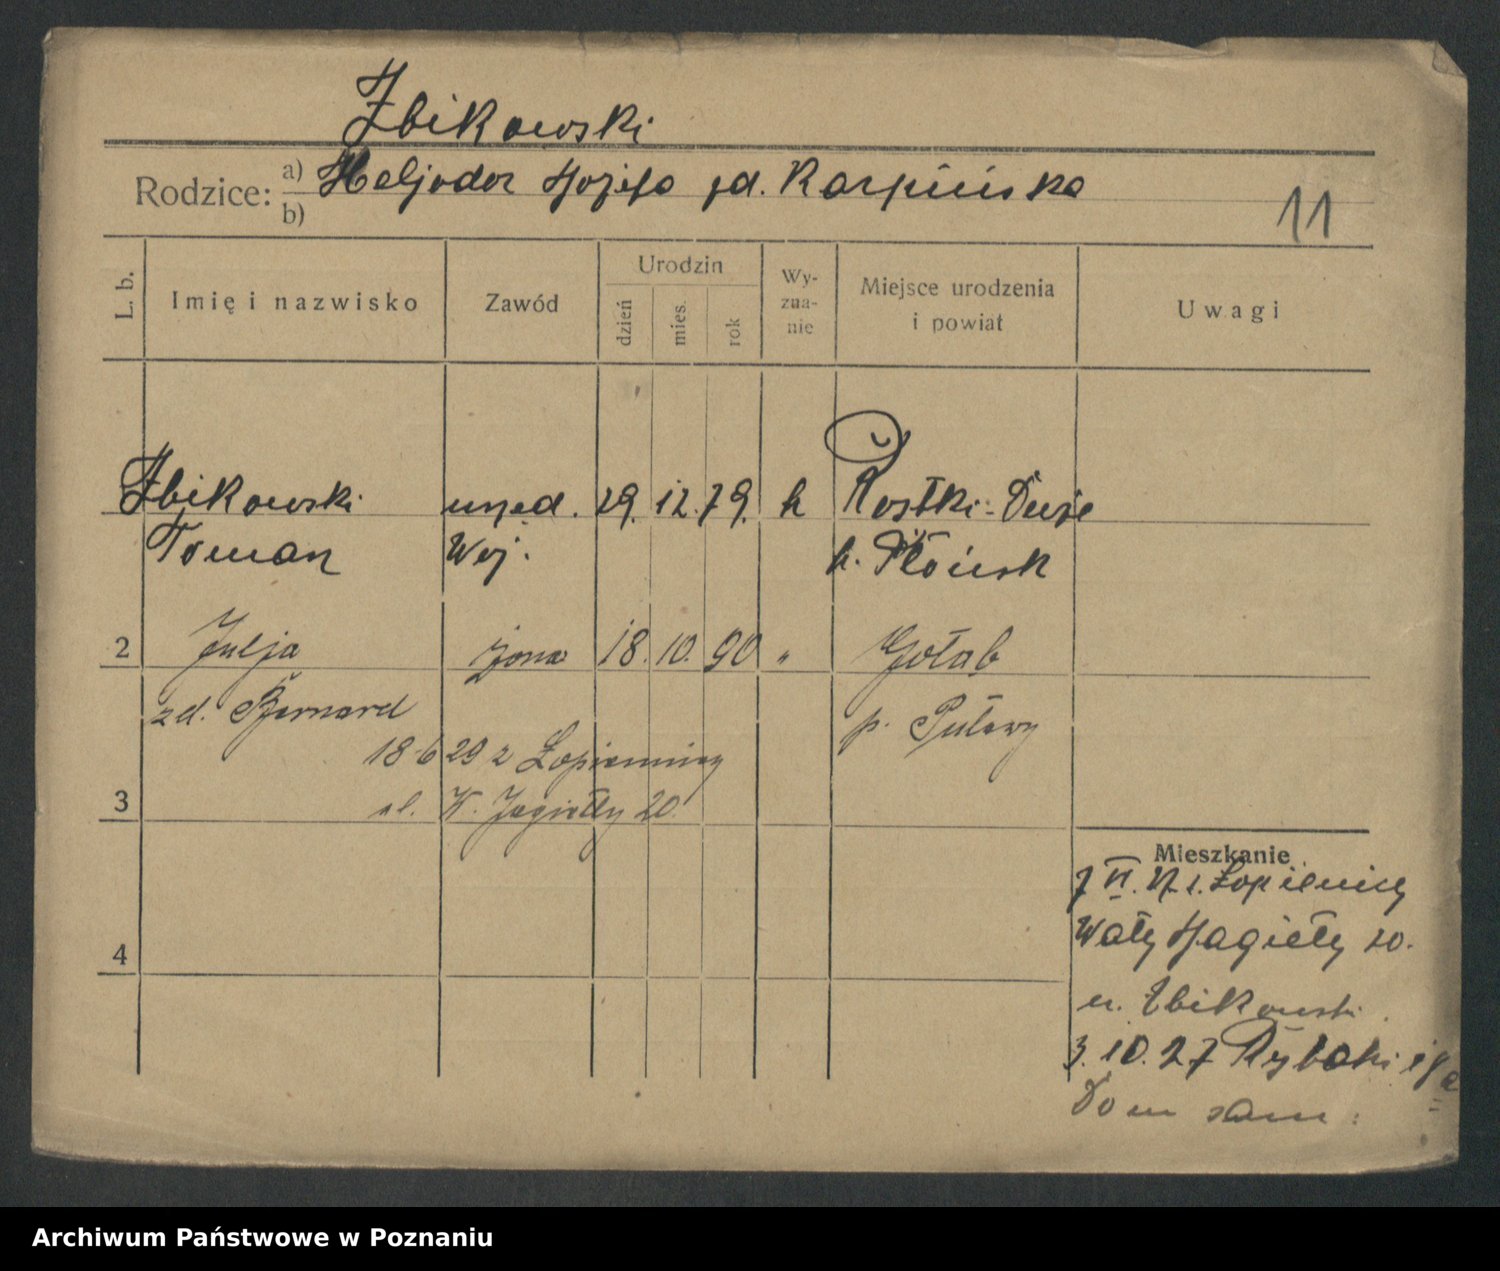 Zbikowski
Rodzice: a) Heljodor Józefa zd. Karpińska
b)
11
L. b.
Imię i nazwisko
Zawód
Urodzin
dzień
mies.
rok
Wy-
zna-
nie
Miejsce urodzenia
i powiat
Uwagi
Zbikowski urzęd. 29. 12. 79. k Rostki-Duże
Roman Woj. p. Płońsk
2 Julja żona 18. 10. 90 " Gołąb
zd. Bernard p. Puławy
18-6 29 z Łopiennicy
3 ul. W. Jagiełły 20.
Mieszkanie
7 VI. 27 z. Łopienicy
4 Wały Jagieły 20.
u. Zbikowski.
3.10.27 Rybaki
Dom sam.
Archiwum Państwowe w Poznaniu